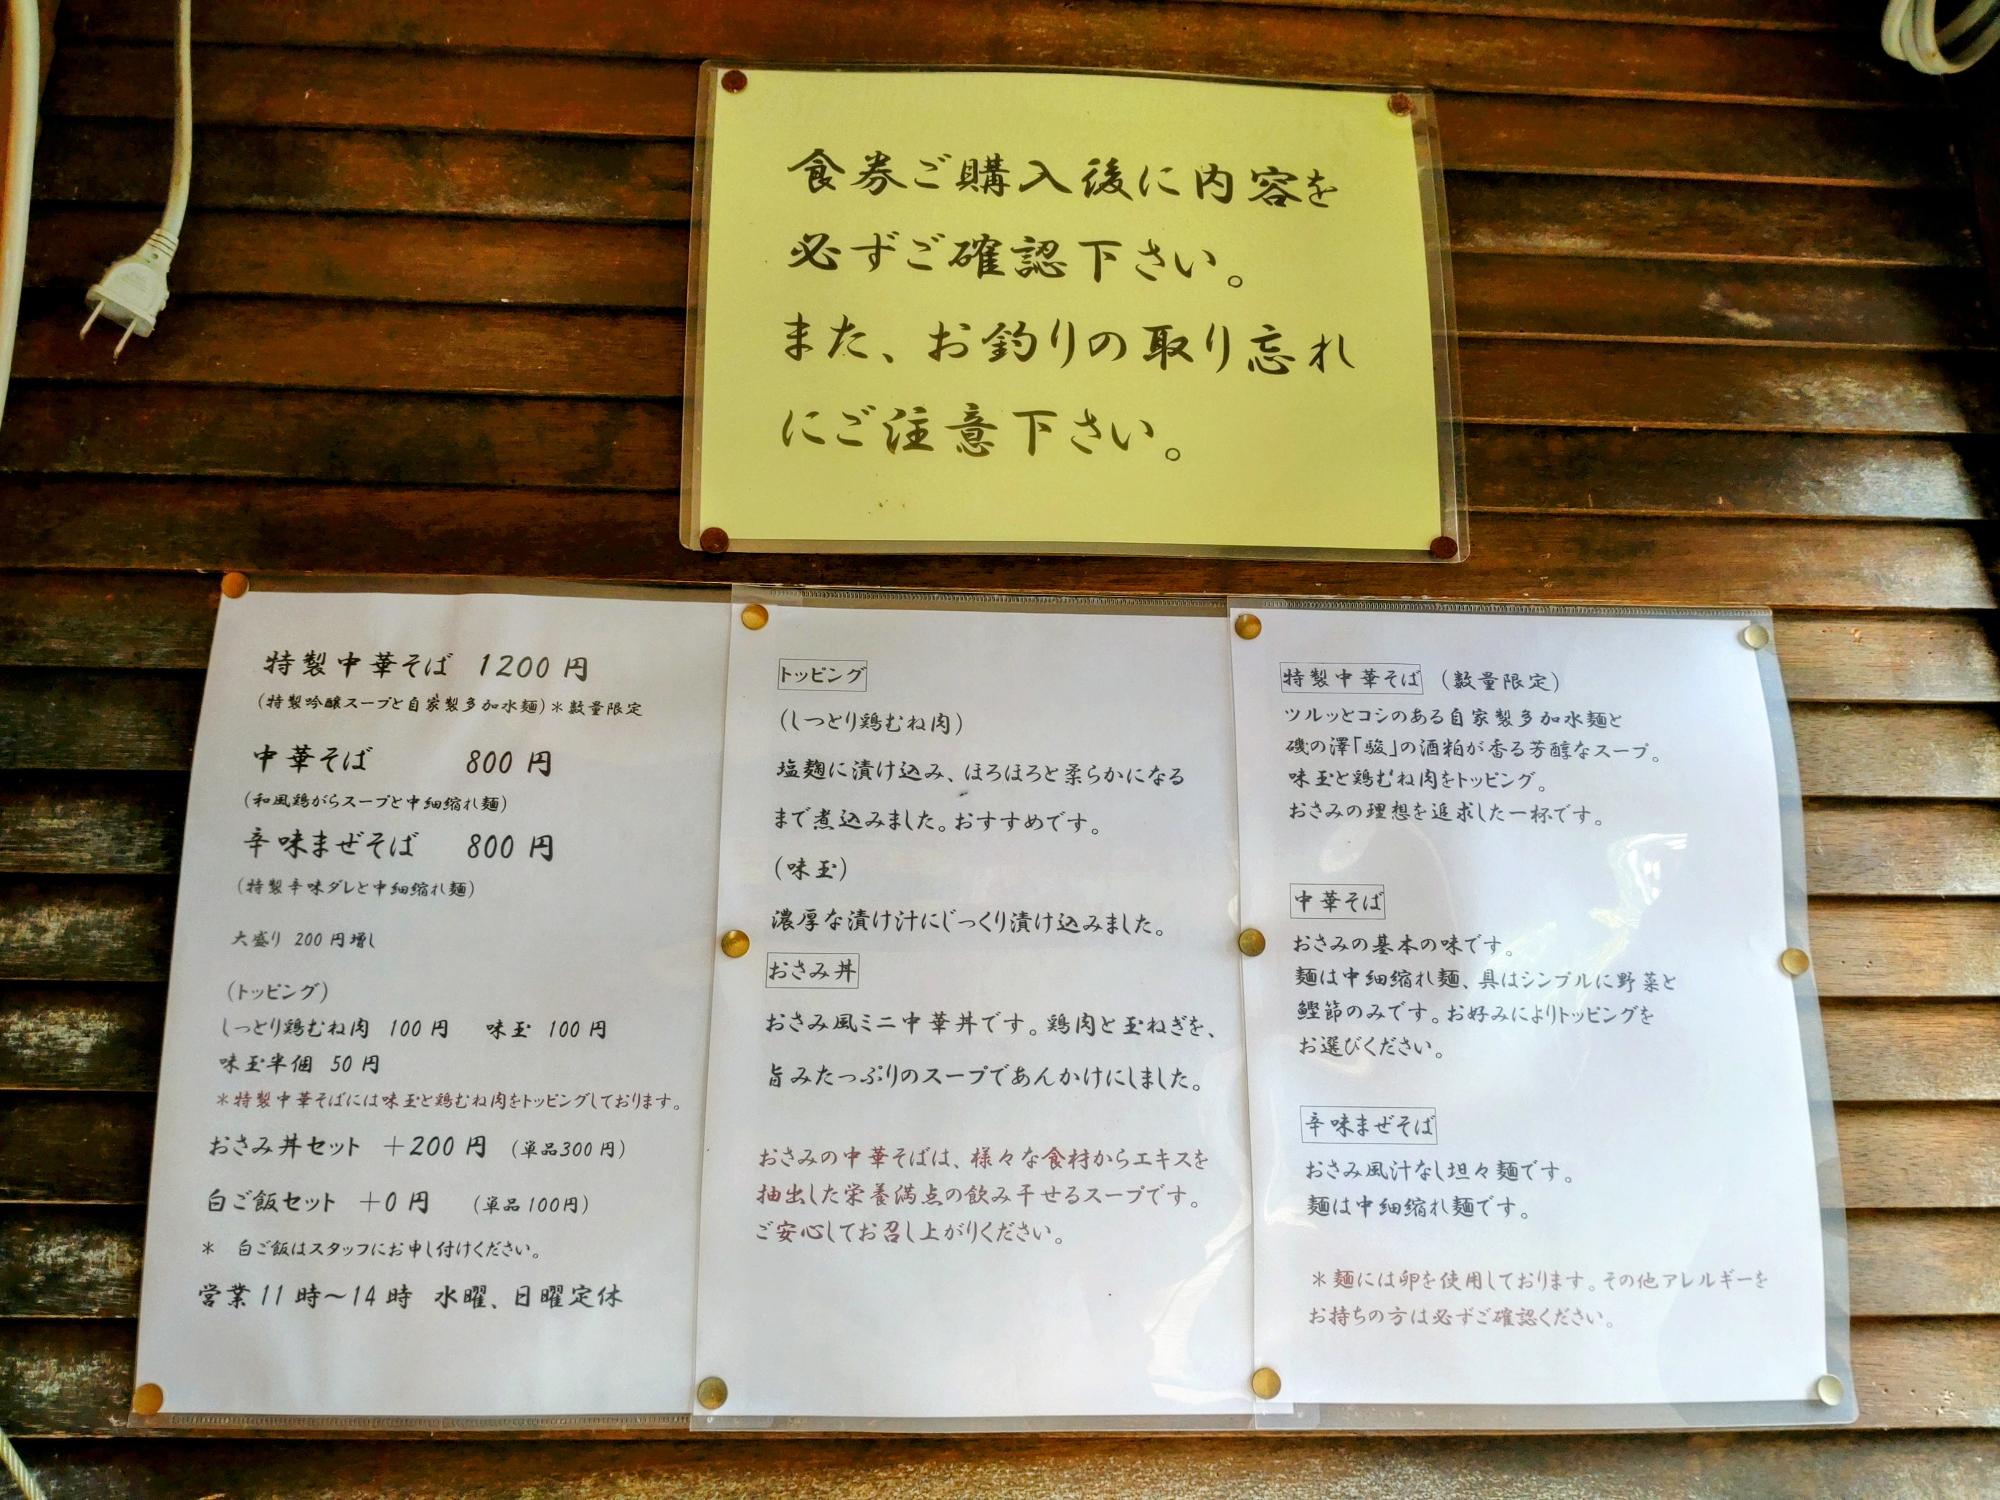 食券ご購入後に内容を
必ずご確認下さい。
また、お釣りの取り忘れ
にご注意下さい。
特製中華そば 1200円
(特製吟醸スープと自家製多加水麺)*数量限定
中華そば 800円
(和風鶏がらスープと中細縮れ麺)
辛味まぜそば 800円
(特製辛味ダレと中細縮れ麺)
大盛り 200円増し
(トッピング)
しっとり鶏むね肉 100円 味玉 100円
味玉半個 50円
*特製中華そばには味玉と鶏むね肉をトッピングしております。
おさみ丼セット +200円 (単品300円)
白ご飯セット +0円 (単品100円)
* 白ご飯はスタッフにお申し付けください。
営業11時〜14時 水曜、日曜定休
トッピング
(しっとり鶏むね肉)
塩麹に漬け込み、ほろほろと柔らかになる
まで煮込みました。おすすめです。
(味玉)
濃厚な漬け汁にじっくり漬け込みました。
おさみ丼
おさみ風ミニ中華丼です。鶏肉と玉ねぎを、
旨みたっぷりのスープであんかけにしました。
おさみの中華そばは、様々な食材からエキスを
抽出した栄養満点の飲み干せるスープです。
ご安心してお召し上がりください。
特製中華そば (数量限定)
ツルッとコシのある自家製多加水麺と
磯の澤「駿」の酒粕が香る芳醇なスープ。
味玉と鶏むね肉をトッピング。
おさみの理想を追求した一杯です。
中華そば
おさみの基本の味です。
麺は中細縮れ麺、具はシンプルに野菜と
鰹節のみです。お好みによりトッピングを
お選びください。
辛味まぜそば
おさみ風汁なし坦々麺です。
麺は中細縮れ麺です。
*麺には卵を使用しております。その他アレルギーを
お持ちの方は必ずご確認ください。